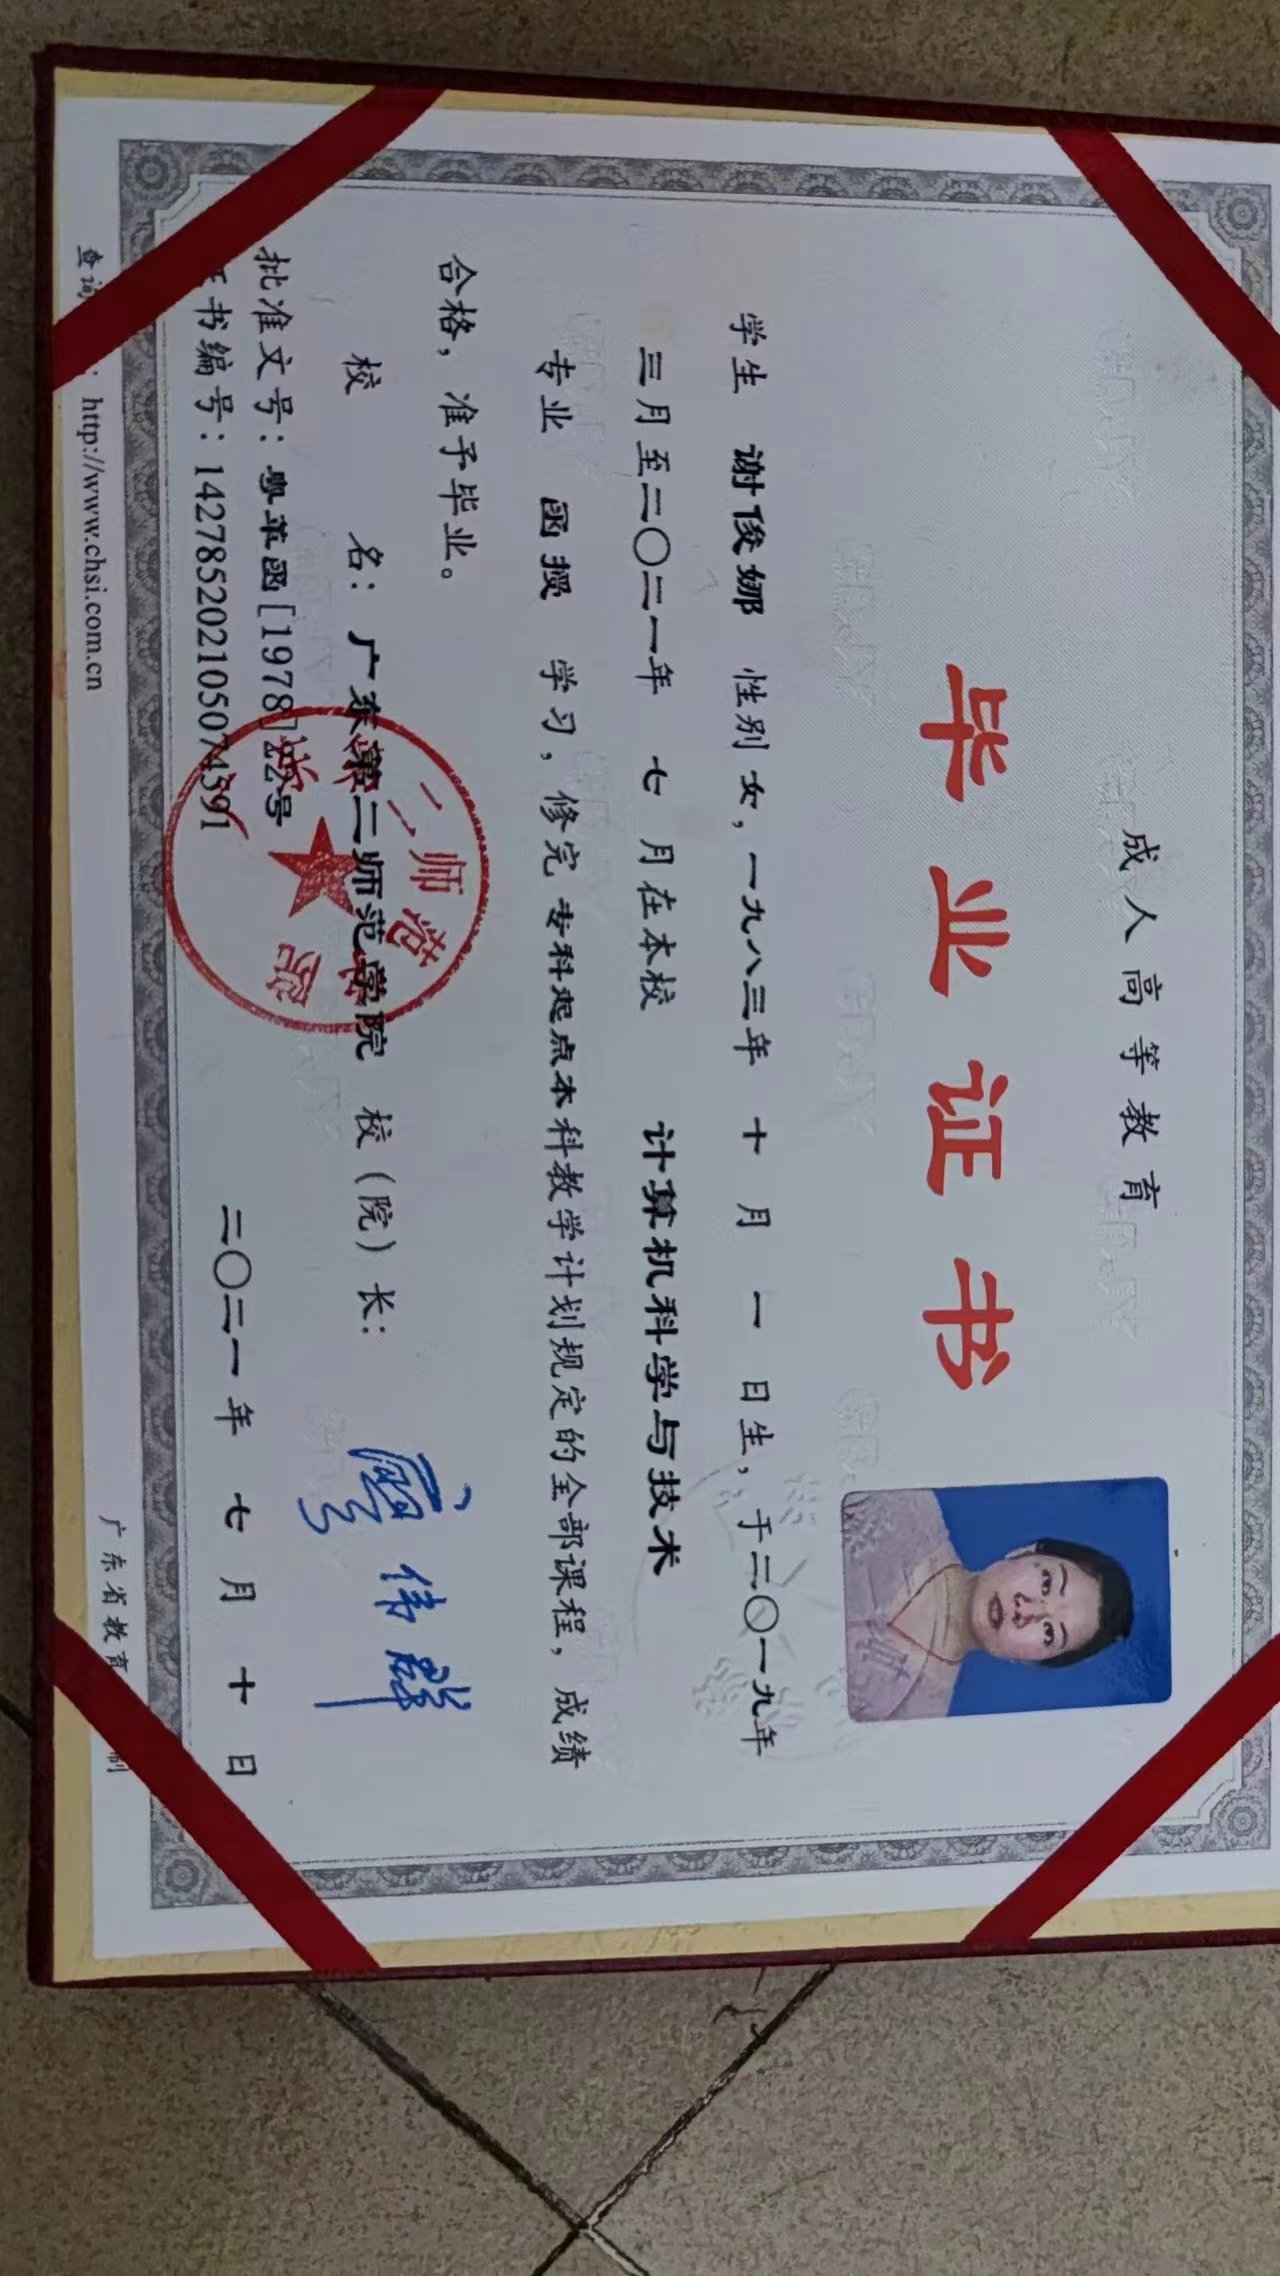 成人高等教育
毕业证书
学生 谢俊娜 性别女，一九八三年 十 月 一 日生，于二〇一九年
三月至二〇二一年 七 月在本校 计算机科学与技术
专业 函授 学习，修完专科起点本科教学计划规定的全部课程，成绩
合格，准予毕业。
校 名：广东第二师范学院 校（院）长：廖伟群
批准文号：粤革函[1978]号
书编号：142785202105074391
二〇二一年 七 月 十 日
查询：http://www.chsi.com.cn
广东省教育制
二师范学院